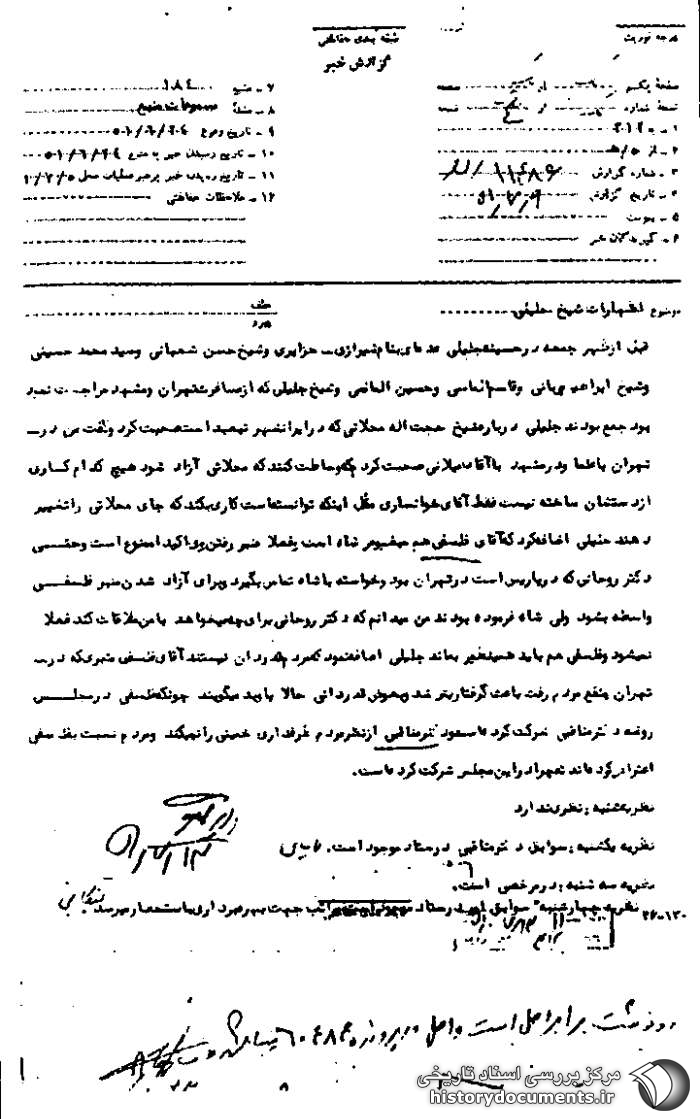 درجه فوریت
طبقه بندی حفاظتی
گزارش خبر
صفحه یکم از صفحه
نسخه شماره از نسخه
۱ – به ۳۱۲
۲ – از ۵ / هـ
۳ – شماره گزارش ۱۱۴۸۶ /
۴ – تاریخ گزارش
۵ – پیوست
۶ – گیرندگان خبر
۷ – منبع ۱۸۴۰
۸ – منشأ مسموعات منبع
۹ – تاریخ وقوع ۵۰/۶/۲۴
۱۰ – تاریخ رسیدن خبر به منبع ۵۰/۶/۲۴
۱۱ – تاریخ رسیدن خبر برهبر عملیات محل
۱۲ – ملاحظات حفاظتی
موضوع اظهارات شیخ جلیلی
عطف
پیرو
قبل از ظهر جمعه در حسینیه جلیلی عده‌ای بنام شیرازی – جزایری و شیخ حسن شعبانی و سید محمد حسینی
و شیخ ابراهیم و قاسم الماسی و حسین الماسی و شیخ جلیلی که از مسافرت تهران و مشهد مراجعت نموده
بود جمع بودند جلیلی درباره شیخ حجت اله محلاتی که در ایرانشهر تبعید است صحبت کرد و گفت من در
تهران با علما و در مشهد با آقای میلانی صحبت کردم که وساطت کنند که محلاتی آزاد شود هیچ کدام کاری
از دستشان ساخته نیست فقط آقای خوانساری مثل اینکه توانسته است کاری بکند که جای محلاتی را تغییر
دهند جلیلی اضافه کرد که آقای فلسفی هم مغضوب شاه است و فعلا منبر رفتن وی اکیدا ممنوع است و حتی
دکتر روحانی که در پاریس است در تهران بود و خواسته با شاه تماس بگیرد و برای آزاد شدن منبر فلسفی
واسطه بشود ولی شاه فرموده بودند من میدانم که دکتر روحانی برای چه میخواهد با من ملاقات کند فعلا
نمیشود و فلسفی هم باید همینطور بماند جلیلی اضافه نمود که مردم قدردان نیستند آقای فلسفی منبری که در
تهران بنفع مردم رفت باعث گرفتاریش شد و بعوض قدردانی حالا باید میگویند چونکه فلسفی در مجلس
روضه دکتر مناقبی شرکت کرده است و دکتر مناقبی از نظر مردم طرفداری خمینی را نمیکند و مردم نسبت بفلسفی
اعتراض کرده‌اند که چرا در این مجلس شرکت کرده است.
نظریه شنبه : نظری ندارد
نظریه یکشنبه : سوابق دکتر مناقبی در ستاد موجود است.
نظریه سه شنبه : در مرخصی است.
نظریه چهارشنبه : سوابق در ستاد جهت بهره‌برداری باستحضار میرسد
۲۶-۱۳۰
رونوشت برابر اصل است و اصل در پرونده ۶۰۴۸۴
مرکز بررسی اسناد تاریخی
historydocuments.ir